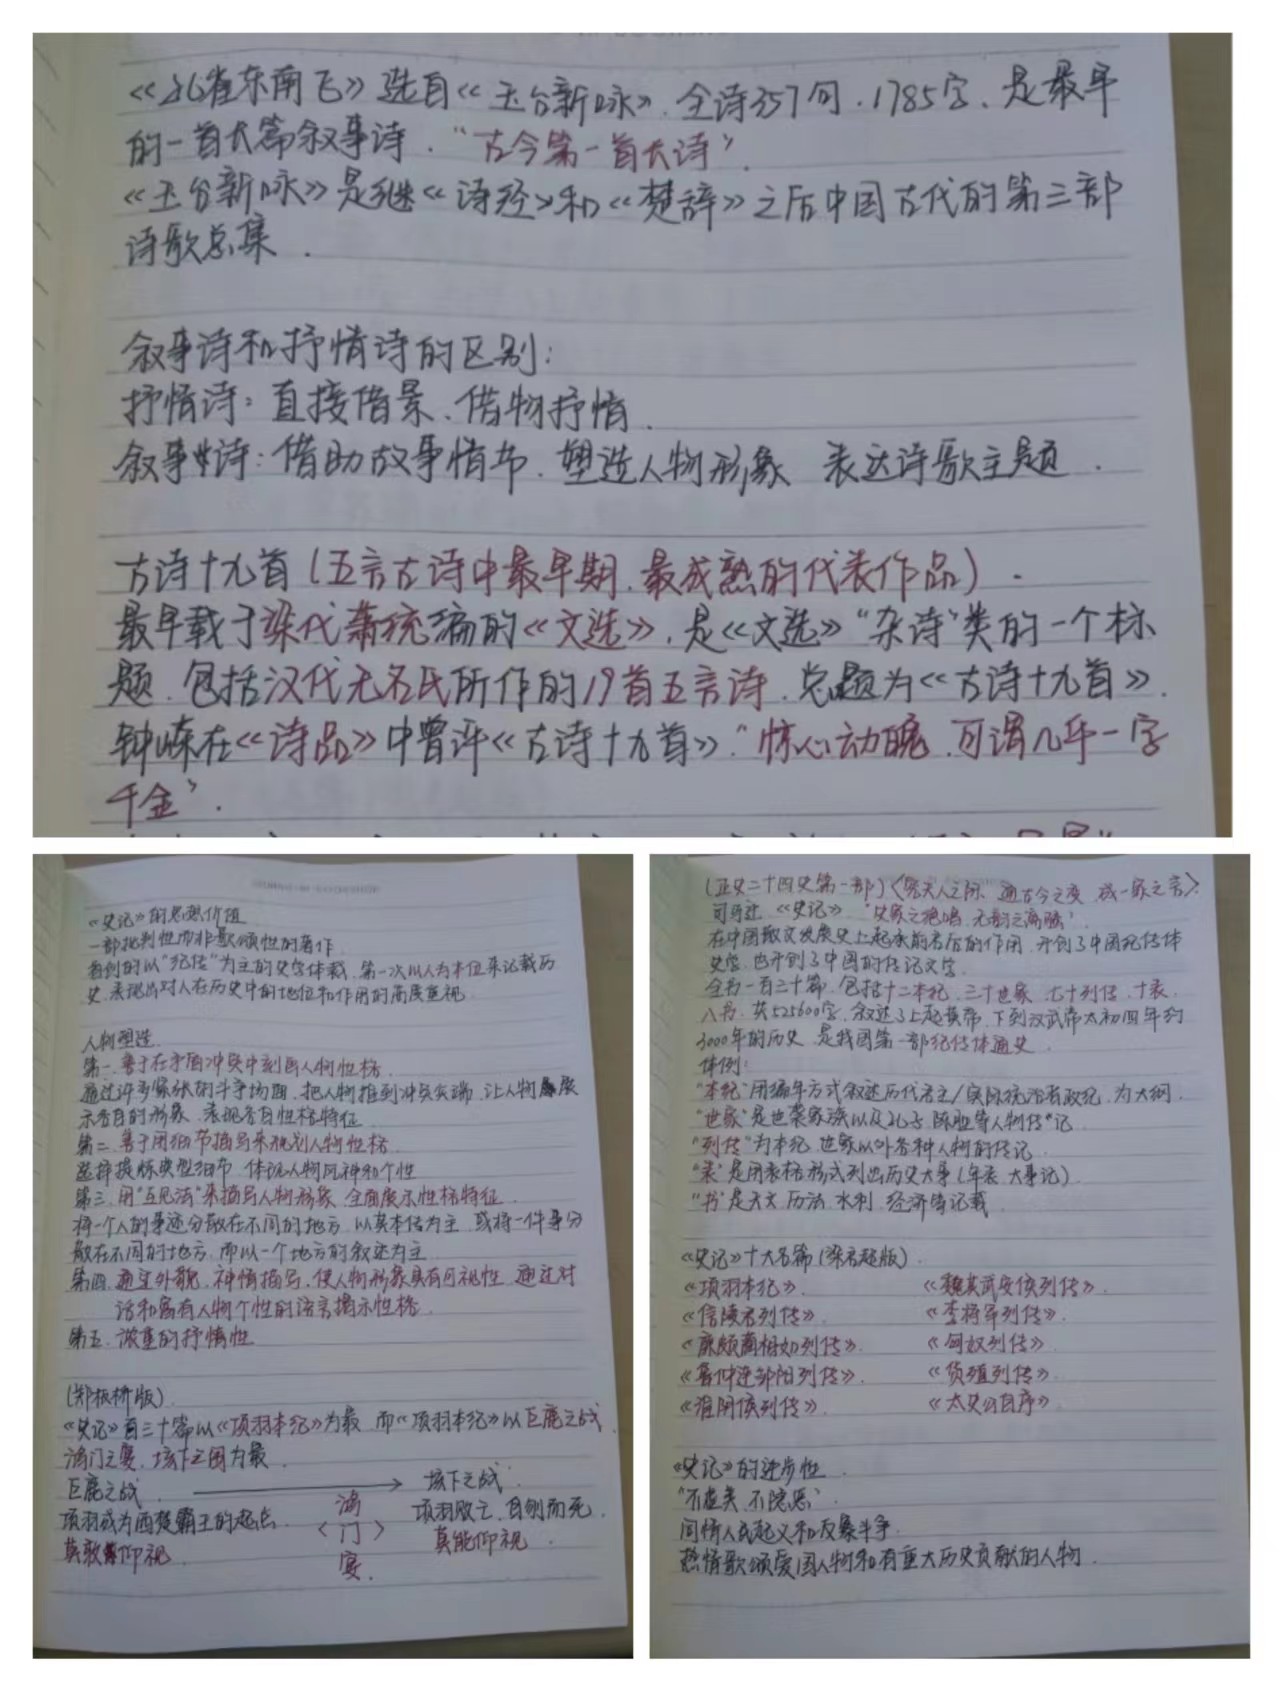 《孔雀东南飞》选自《玉台新咏》.全诗357句.1785字、是最早
的一首大篇叙事诗.“古今第一首大诗”.
《玉台新咏》是继《诗经》和《楚辞》之后中国古代的第三部
诗歌总集.
叙事诗和抒情诗的区别:
抒情诗:直接借景、借物抒情.
叙事诗:借助故事情节.塑造人物形象 表达诗歌主题.
古诗十九首(五言古诗中最早期.最成熟的代表作品).
最早载于梁代萧统编的《文选》,是《文选》“杂诗”类的一个标
题.包括汉代无名氏所作的19首五言诗.总题为《古诗十九首》.
钟嵘在《诗品》中曾评《古诗十九首》.“惊心动魄.可谓几乎一字
千金”.
《史记》的思想价值
一部批判性而非歌颂性的著作.
首创的以“纪传”为主的史学体裁.第一次以人为本位来记载历
史.表现出对人在历史中的地位和作用的高度重视.
人物塑造.
第一.善于在矛盾冲突中刻画人物性格.
通过许多紧张的斗争场面.把人物推到冲突尖端.让人物展
示各自的形象.表现各自性格特征.
第二.善于用细节描写来刻划人物性格.
选择提炼典型细节.体现人物风神和个性
第三.用“互见法”来描写人物形象.全面展示性格特征.
将一个人的事迹分散在不同的地方.以其本传为主.或将一件事分
散在不同的地方.而以一个地方的叙述为主
第四.通过外貌.神情描写.使人物形象具有可视性.通过对
话和富有人物个性的语言揭示性格.
第五.浓重的抒情性
(郑板桥版).
《史记》百三十篇以《项羽本纪》为最 而《项羽本纪》以巨鹿之战.
鸿门之宴.垓下之围为最.
巨鹿之战. 垓下之战.
项羽成为西楚霸王的起点. 〈鸿门宴.〉 项羽败亡.自刎而死.
莫敢仰视. 莫能仰视.
(正史二十四史第一部)〈究天人之际.通古今之变.成一家之言〉.
司马迁.《史记》.“史家之绝唱.无韵之离骚”.
在中国散文发展史上起承前启后的作用.开创了中国纪传体
史学.也开创了中国的传记文学.
全书一百三十篇.包括十二本纪.三十世家.七十列传.十表.
八书.共526600字.叙述了上起黄帝.下到汉武帝太初四年约
3000年的历史.是我国第一部纪传体通史.
体例:
“本纪”用编年方式叙述历代君主/实际统治者政纪.为大纲.
“世家”是世袭家族以及孔子.陈胜等人物传记.
“列传”为本纪.世家以外各种人物的传记.
“表”是用表格形式列出历史大事(年表.大事记)
“书”是天文.历法.水利.经济等记载.
《史记》十大名篇(梁启超版).
《项羽本纪》. 《魏其武安侯列传》.
《信陵君列传》. 《李将军列传》.
《廉颇蔺相如列传》. 《匈奴列传》.
《鲁仲连邹阳列传》. 《货殖列传》.
《淮阴侯列传》. 《太史公自序》.
《史记》的进步性.
“不虚美.不隐恶”.
同情人民起义和反暴斗争.
热情歌颂爱国人物和有重大历史贡献的人物.